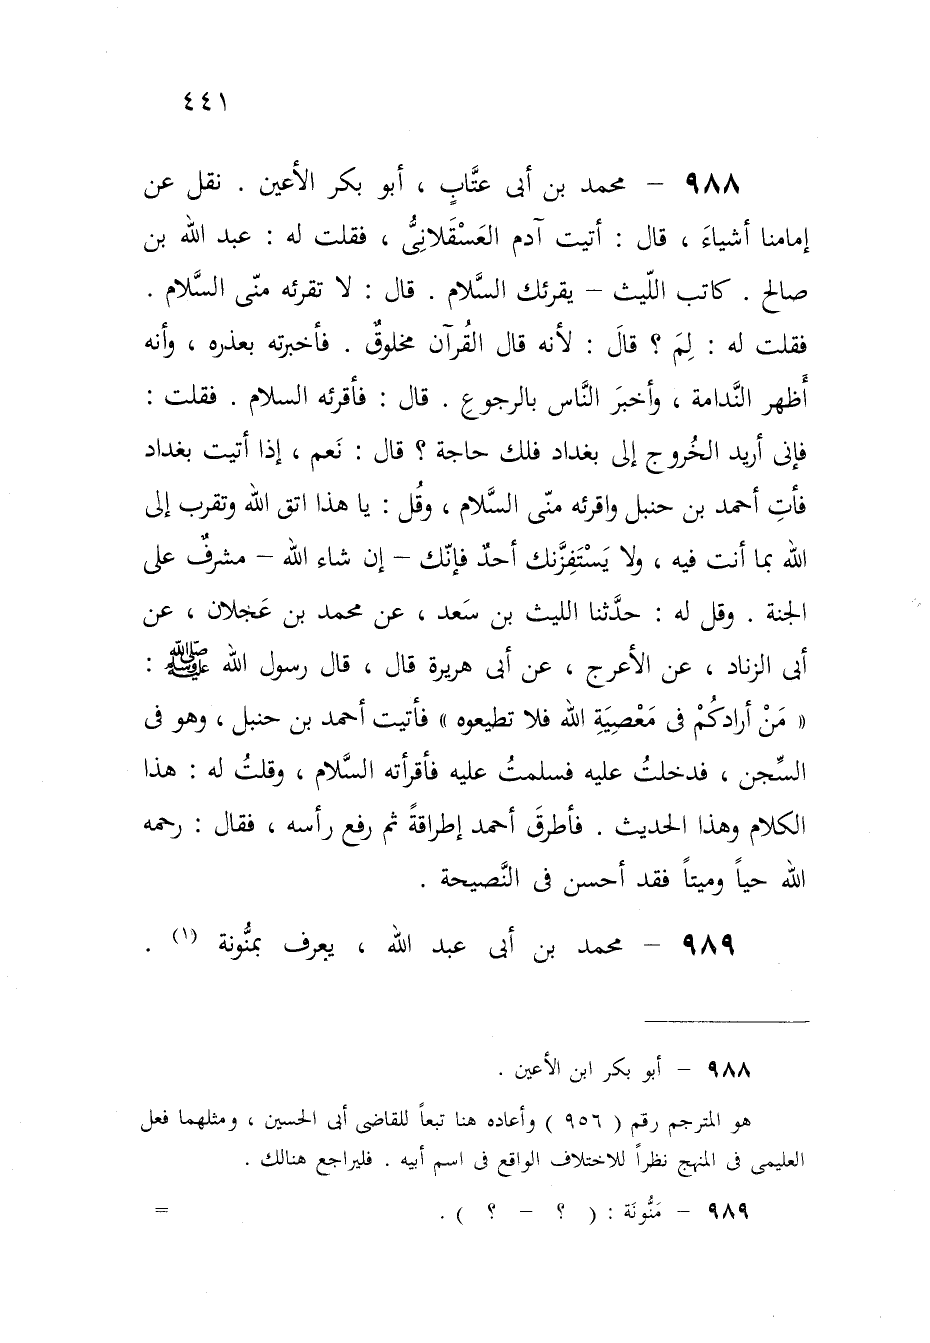 ٤٤١
٩٨٨ – محمد بن أبى عتَّابٍ ، أبو بكر الأعين . نقل عن
إمامنا أشياءَ ، قال : أتيت آدم العَسْقَلانِىُّ ، فقلت له : عبد الله بن
صالح . كاتب اللّيث – يقرئك السَّلام . قال : لا تقرئه منّى السَّلام .
فقلت له : لِمَ ؟ قالَ : لأنه قال القُرآن مخلوقٌ . فأخبرته بعذره ، وأنه
أَظهر النَّدامة ، وأخبرَ النَّاس بالرجوع . قال : فأقرئه السلام . فقلت :
فإنى أريد الخُروج إلى بغداد فلك حاجة ؟ قال : نَعم ، إذا أتيت بغداد
فأتِ أحمد بن حنبل واقرئه منّى السَّلام ، وقُل : يا هذا اتق الله وتقرب إلى
الله بما أنت فيه ، ولا يَسْتَفِزَّنك أحدٌ فإنّك – إن شاء الله – مشرفٌ على
الجنة . وقل له : حدَّثنا الليث بن سَعد ، عن محمد بن عَجلان ، عن
أبى الزناد ، عن الأعرج ، عن أبى هريرة قال ، قال رسول الله ﷺ :
« مَنْ أرادكُمْ فى مَعْصِيَةِ الله فلا تطيعوه » فأتيت أحمد بن حنبل ، وهو فى
السِّجن ، فدخلتُ عليه فسلمتُ عليه فأقرأته السَّلام ، وقلتُ له : هذا
الكلام وهذا الحديث . فأطرقَ أحمد إطراقةً ثم رفع رأسه ، فقال : رحمه
الله حياً وميتاً فقد أحسن فى النَّصيحة .
٩٨٩ – محمد بن أبى عبد الله ، يعرف بمنُّونة (١) .
٩٨٨ – أبو بكر ابن الأعين .
هو المترجم رقم ( ٩٥٦ ) وأعاده هنا تبعاً للقاضى أبى الحسين ، ومثلهما فعل
العليمى فى المنهج نظراً للاختلاف الواقع فى اسم أبيه . فليراجع هنالك .
٩٨٩ – مَنُّونَة : ( ؟ – ؟ ) . =